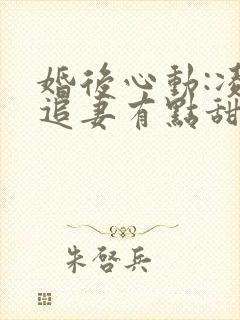 婚後心動:凌
追妻有點甜
朱啓兵